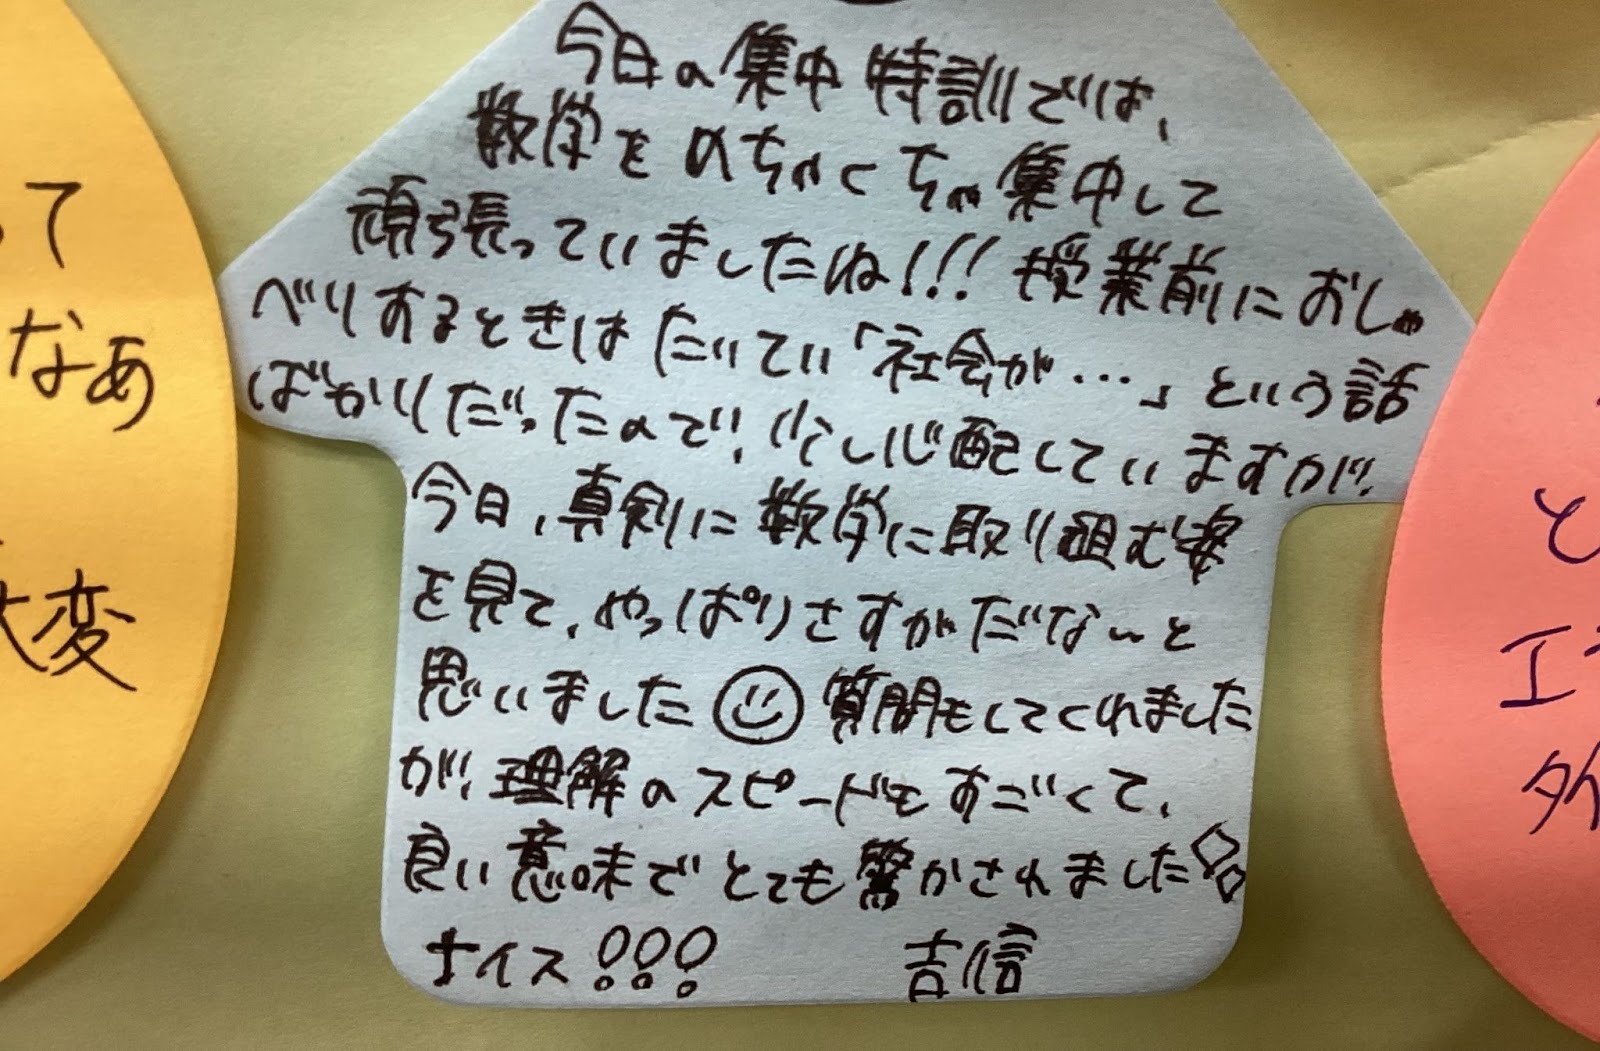 今日の集中特訓では、
数学をめちゃくちゃ集中して
頑張っていましたね!!! 授業前におしゃ
べりするときはだいたい「社会が…」という話
ばかりだったので、少し心配していますが、
今日、真剣に数学に取り組む姿
を見て、やっぱりさすがだな~と
思いました 質問もしてくれました
が、理解のスピードもすごくて、
良い意味でとても驚かされました
ナイス!!! 吉信
って
なあ
大変
と
エ
外